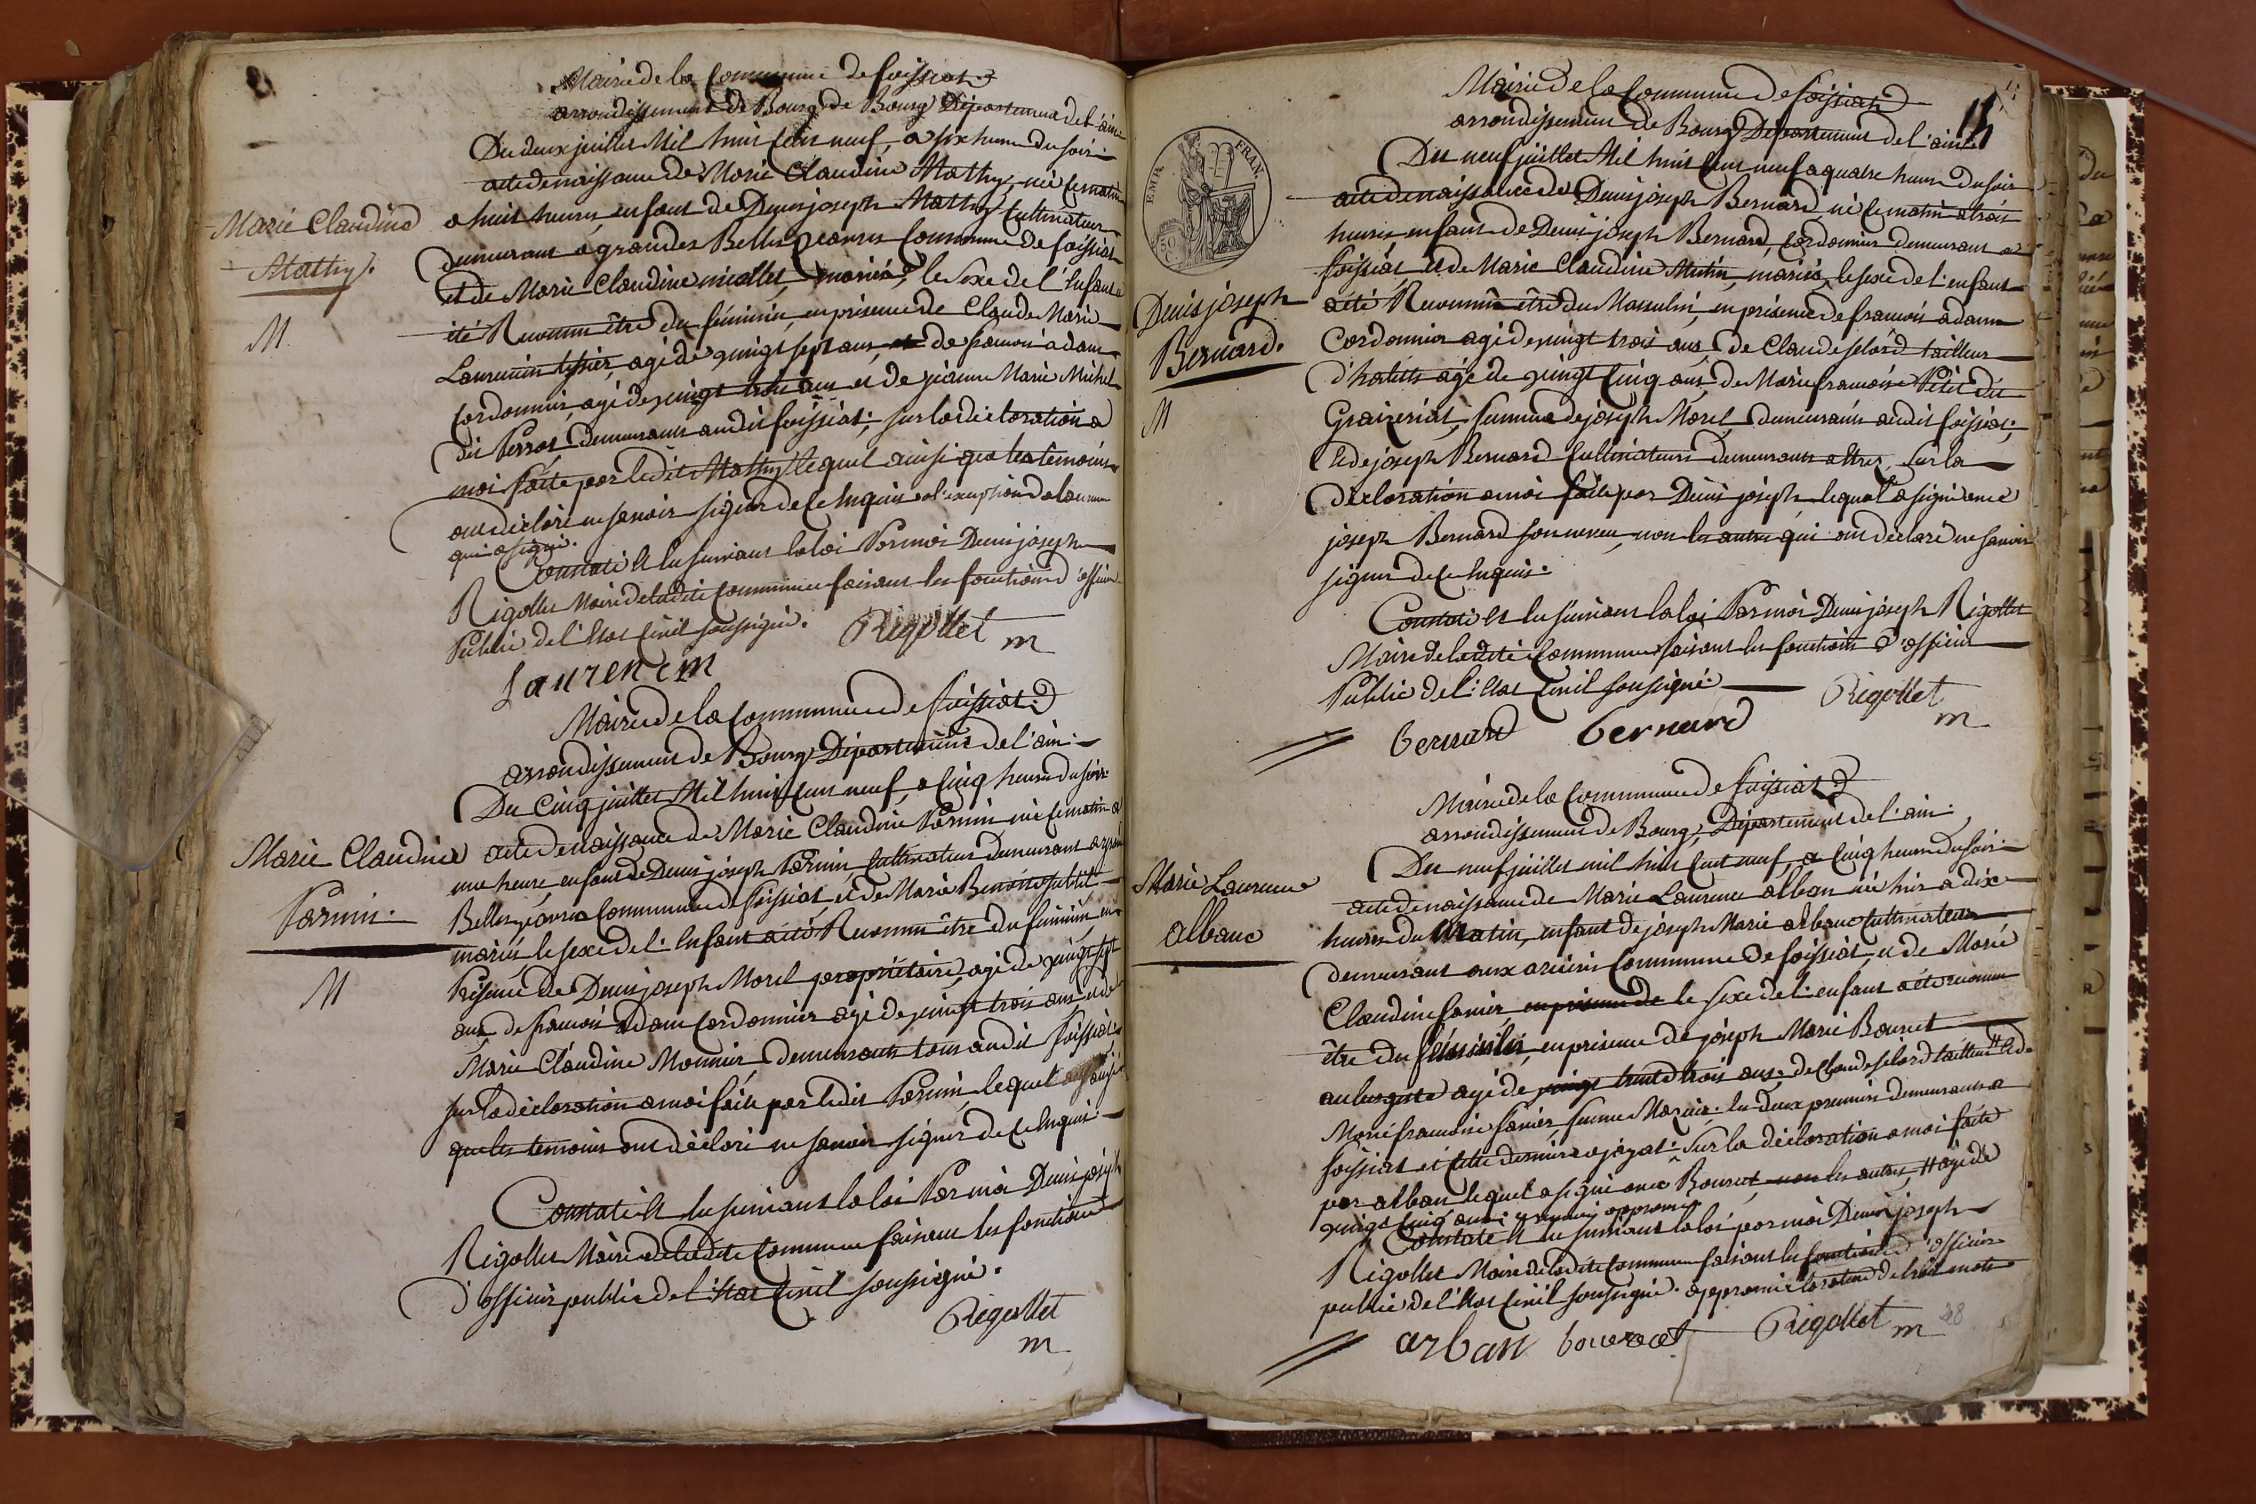 Mairie de la Commune de foissiat
arrondissement de Bourg de Bourg Département de l'ain
Du deux juillet Mil huit Cent neuf, a six heure du soir
acte de naissance de Marie Claudine Mathy, née ce matin
Marie Claudine
Mathy.
M
a huit heures, enfant de Denis joseph Mathy Cultivateur
demeurant a grandes Belles Commune de foissiat
et de Marie Claudine mariés, le sexe de l'Enfant a
été Reconnu être du féminin, en présence de Claude Marie
Laurencin agé de vingt sept ans, de francois adam
Cordonnier, agé de vingt trois ans et de jeanne Marie Michel
dit Perrot, demeurants audit foissiat; sur la déclaration a
moi faite par ledit Mathy lequel ainsi que les témoins
ont déclaré ne savoir signer de ce Enquis a l'exception de Laurencin
qui a signé.
Constaté et lu suivant la loi Par moi Denis joseph
Rigollet Maire de ladite Commune faisant les fonctions d'officier
Public de l'Etat Civil soussigné. Rigollet
m
Laurencin
Mairie de la Commune de foissiat
arrondissement de Bourg Département de l'ain
Du Cinq juillet Mil huit Cent neuf a Cinq heure du soir
Marie Claudine
Parnin.
M
acte de naissance de Marie Claudine Parnin née ce matin a
une heure, enfant de Denis joseph Parnin Cultivateur demeurant a grand
Belles Commune de foissiat, et de Marie
mariés, le sexe de l'Enfant a été Reconnu être du féminin, en
Présence de Denis joseph Morel propriétaire, agé de vingt sept
ans, de francois adam Cordonnier agé de vingt trois ans et de
Marie Claudine Monnier, demeurants tous audit foissiat
sur la déclaration a moi faite par ledit Parnin, lequel ainsi
que les témoins ont déclaré ne savoir signer de ce Enquis
Constaté et lu suivant la loi Par moi Denis joseph
Rigollet Maire de ladite Commune faisant les fonctions
d'officier public de l'Etat Civil soussigné.
Rigollet
m
Mairie de la Commune de foissiat
arrondissement de Bourg Département de l'ain
EMP. FRAN.
Du neuf juillet Mil huit Cent neuf a quatre heure du soir
acte de naissance de Denis joseph Bernard, né ce matin a trois
Denis joseph
Bernard.
M
heures enfant de Denis joseph Bernard, Cordonnier demeurant a
foissiat, et de Marie Claudine Mutin, mariés, le sexe de l'enfant
a été Reconnu être du Masculin, en présence de francois adam
Cordonnier agé de vingt trois ans, de Claude felard tailleur
d'habits agé de vingt Cinq ans, de Marie francoise Petit dit
femme de joseph Morel, demeurants audit foissiat;
Et de joseph Bernard Cultivateur demeurant sur la
déclaration a moi faite par Denis joseph lequel a signé avec
joseph Bernard son neveu, non les autres qui ont déclaré ne savoir
signer de ce Enquis.
Constaté et lu suivant la loi Par moi Denis joseph Rigollet
Maire de ladite Commune faisant les fonctions d'officier
Public de l'Etat Civil soussigné Rigollet
m
bernard bernard
Mairie de la Commune de foissiat
arrondissement de Bourg, Département de l'ain
Du neuf juillet mil huit Cent neuf, a Cinq heure du soir
Marie Laurence
albanc
acte de naissance de Marie Laurence alban née hier a dix
heures du Matin, enfant de joseph Marie albanc Cultivateur
demeurant aux Commune de foissiat, et de Marie
Claudine en présence de le sexe de l'enfant a été reconnu
être du féminin, en présence de joseph Marie Bouvret
aubergiste agé de vingt trente trois ans, de Claude felard tailleur # Et de
Marie francoise femme les deux premiers demeurants a
foissiat et cette dernière a jayat. Sur la déclaration a moi faite
par alban lequel a signé avec Bouvret, non les autres, # agé de
vingt Cinq ans
Constaté et lu suivant la loi par moi Denis joseph
Rigollet Maire de ladite Commune faisant les fonctions d'officier
public de l'Etat Civil soussigné. approuvé la rature de trois mots
arban bouvret Rigollet m 28